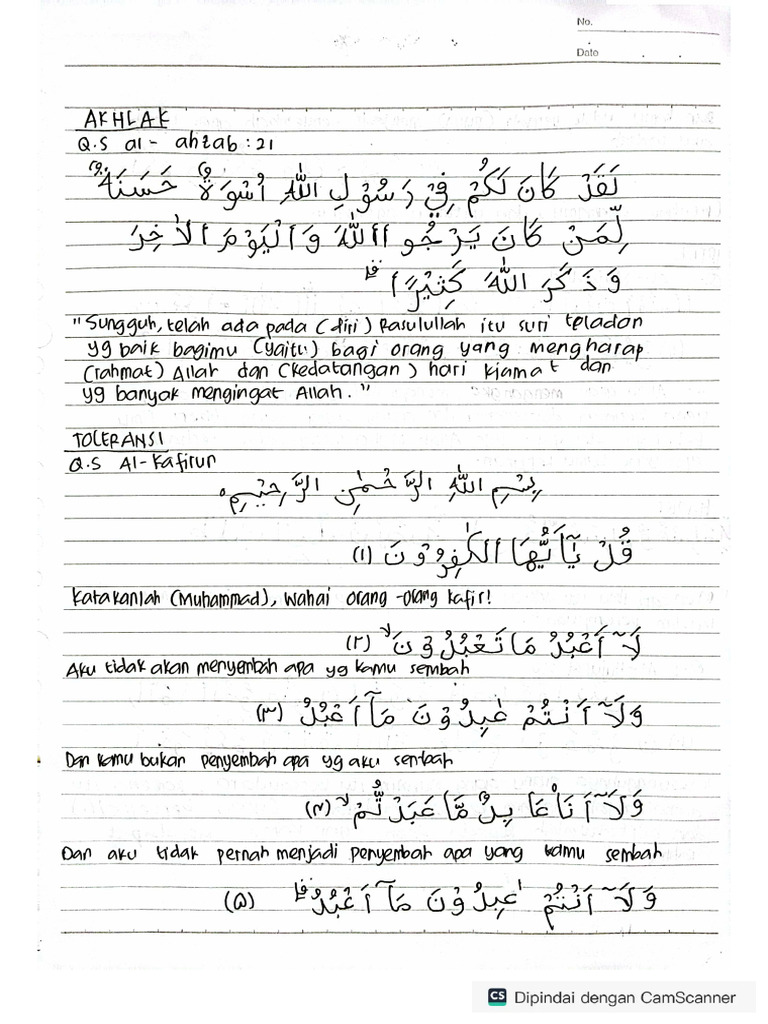 No.
Date
AKHLAK
Q.S al - ahzab : 21
لَقَدْ كَانَ لَكُمْ فِيْ رَسُوْلِ اللّٰهِ اُسْوَةٌ حَسَنَةٌ
لِّمَنْ كَانَ يَرْجُو اللّٰهَ وَالْيَوْمَ الْاٰخِرَ
وَذَكَرَ اللّٰهَ كَثِيْرًا ۗ
"Sungguh, telah ada pada (diri) Rasulullah itu suri teladan
yg baik bagimu (yaitu) bagi orang yang mengharap
(rahmat) Allah dan (kedatangan) hari kiamat dan
yg banyak mengingat Allah."
TOLERANSI
Q.S Al-Kafirun
بِسْمِ اللّٰهِ الرَّحْمٰنِ الرَّحِيْمِ
قُلْ يٰٓاَيُّهَا الْكٰفِرُوْنَ (١)
Katakanlah (Muhammad), Wahai orang-orang kafir!
لَآ اَعْبُدُ مَا تَعْبُدُوْنَۙ (٢)
Aku tidak akan menyembah apa yg kamu sembah
وَلَآ اَنْتُمْ عٰبِدُوْنَ مَآ اَعْبُدُ (٣)
Dan kamu bukan penyembah apa yg aku sembah
وَلَآ اَنَا۠ عَابِدٌ مَّا عَبَدْتُّمْۙ (٤)
Dan aku tidak pernah menjadi penyembah apa yang kamu sembah
وَلَآ اَنْتُمْ عٰبِدُوْنَ مَآ اَعْبُدُۗ (٥)
CS Dipindai dengan CamScanner